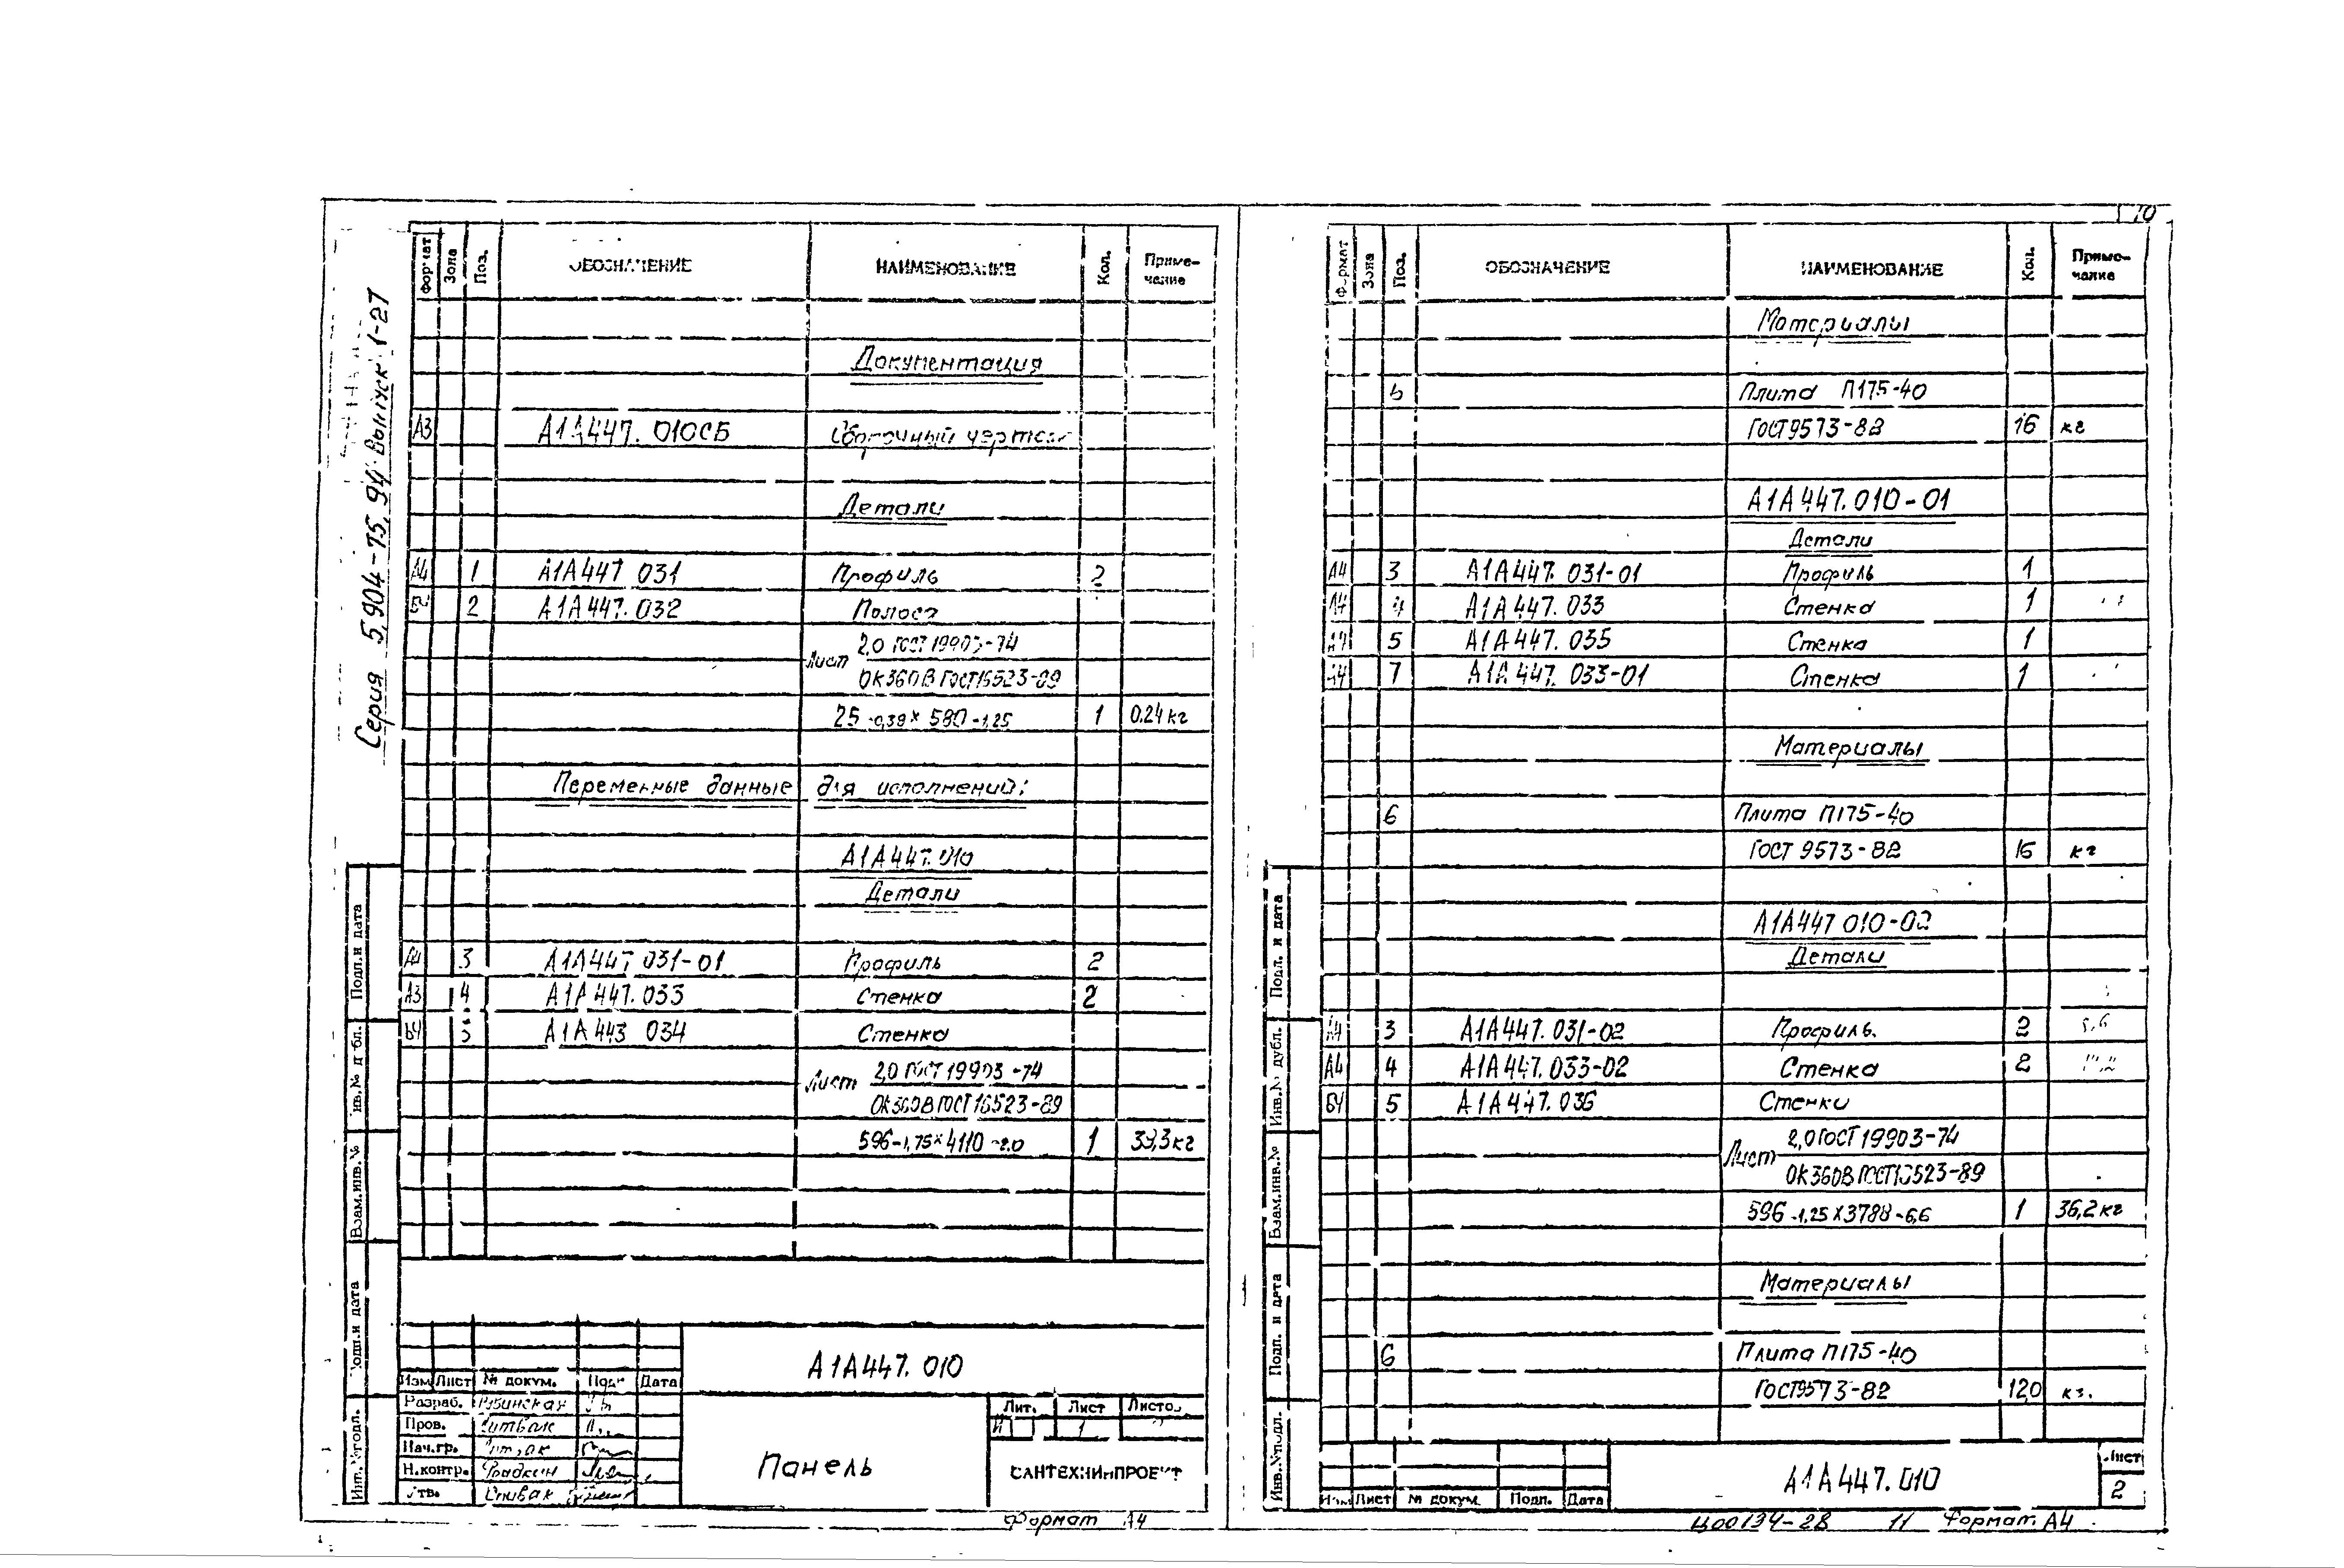 10
Серия 5.904-75.94 Выпуск 1-27
Формат Зона Поз. ОБОЗНАЧЕНИЕ НАИМЕНОВАНИЕ Кол. Приме-
чание
Документация
А3 А1А447.010СБ Сборочный чертеж
Детали
А4 1 А1А447 031 Профиль 2
БЧ 2 А1А447.032 Полоса
2,0 ГОСТ 19903-74
Лист
ОК360В ГОСТ16523-89
25 -0,39 х 580 -1,25 1 0.24кг
Переменные данные для исполнений:
А1А447.010
Детали
А4 3 А1А447 031-01 Профиль 2
А3 4 А1А447.033 Стенка 2
БЧ 5 А1А443 034 Стенка
2,0 ГОСТ 19903-74
Лист
ОК360В ГОСТ 16523-89
596-1,75х4110-2.0 1 39,3кг
А1А447. 010
Изм Лист № докум. Дата
Разраб. Рубинская
Пров. Литвак
Нач.гр. Литвак
Н.контр. Фрадкин
Утв. Спивак
Панель
Лит. Лист
И 1
САНТЕХНИИПРОЕКТ
Формат А4
Подп.и дата
Взам.инв.№
Формат Зона Поз. ОБОЗНАЧЕНИЕ НАИМЕНОВАНИЕ Кол. Приме-
чание
Материалы
6 Плита П175-40
ГОСТ9573-82 16 кг
А1А447.010-01
Детали
А4 3 А1А447. 031-01 Профиль 1
А4 4 А1А447. 033 Стенка 1
А4 5 А1А447. 035 Стенка 1
А4 7 А1А447. 033-01 Стенка 1
Материалы
6 Плита П175-40
ГОСТ 9573-82 16 кг
А1А447 010-02
Детали
А4 3 А1А447.031-02 Профиль. 2
А4 4 А1А447.033-02 Стенка 2
БЧ 5 А1А447.036 Стенки
2,0 ГОСТ 19903-74
Лист
ОК360В ГОСТ16523-89
596 -1,25 Х3788 -6,6 1 36,2кг
Материалы
6 Плита П175-40
ГОСТ9573-82 12,0 кг.
Подп. и дата
Инв.№ дубл.
Взам.инв.№
Подп. и дата
Инв.№подл.
Изм Лист № докум. Подп. Дата
А1А447.010
Лист
2
Ц00134-28 11 Формат А4